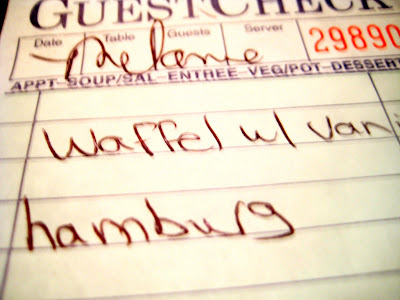 GUESTCHECK
Date Table Guests Server
Melanie
29890
APPT-SOUP/SAL-ENTREE-VEG/POT-DESSERT
Waffel w/ Van
hamburg